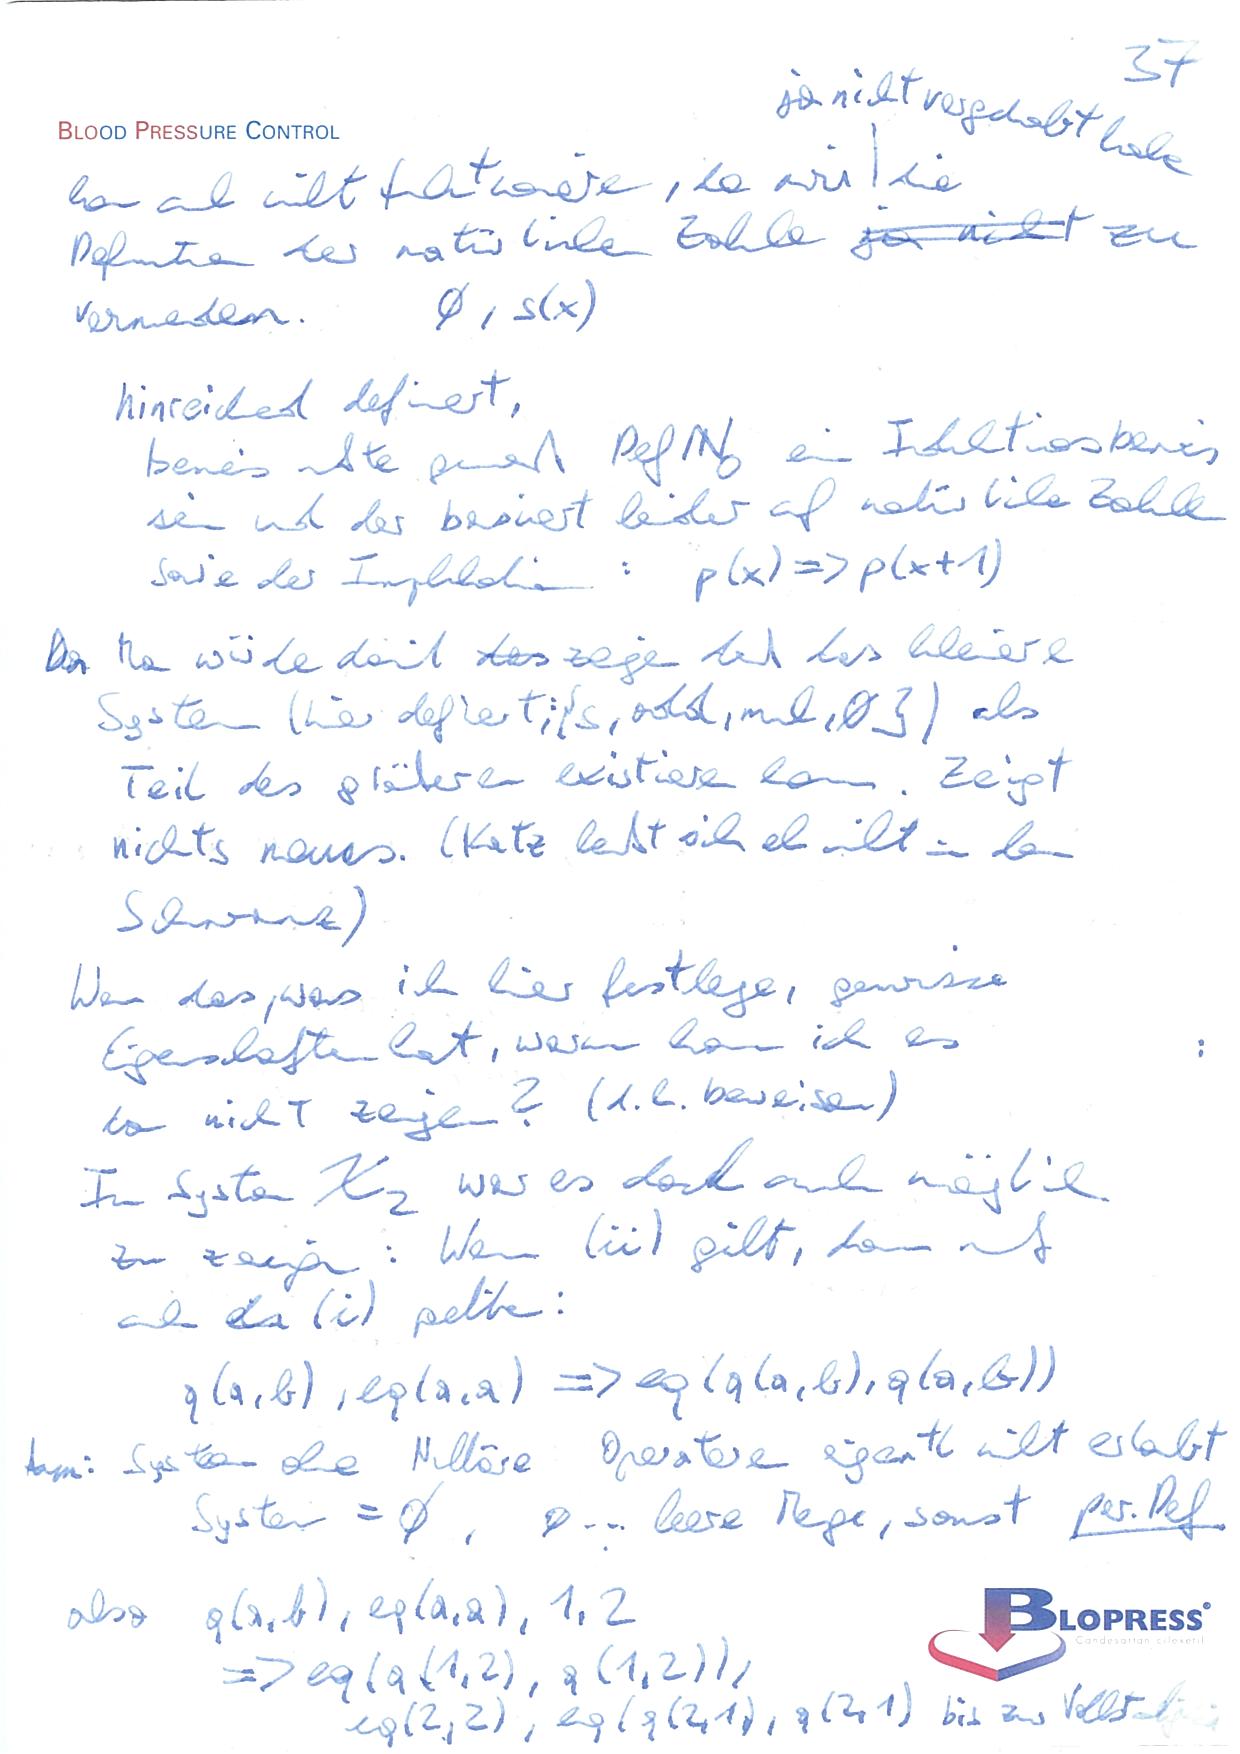 37
ja nicht vorgehabt habe
BLOOD PRESSURE CONTROL
kann auch nicht funktionieren, da wir die
Definition der natürlichen Zahlen ja nicht zu
vermeiden. Ø, s(x)
hinreichend definiert,
beweis müßte gemäß Def ℕ₀ ein Induktionsbeweis
sein und der basiert leider auf natürliche Zahlen
sowie der Implikation : p(x) => p(x+1)
Man würde damit das zeigen daß das kleinere
System (hier definiert; {s, add, mul, Ø}) als
Teil des größeren existieren kann. Zeigt
nichts neues. (Katz beißt sich eh nicht in den
Schwanz)
Wenn das, was ich hier festlege, gewisse
Eigenschaften hat, warum kann ich es
da nicht zeigen? (d.h. beweisen)
Im System K₂ war es doch auch möglich
zu zeigen : Wenn (ii) gilt, dann muß
auch da (i) gelten:
q(a,b), eq(a,a) => eq(q(a,b), q(a,b))
Anm: System ohne Nulläre Operatoren eigentl nicht erlaubt
System = Ø, Ø... leere Menge, sonst per. Def
also q(a,b), eq(a,a), 1, 2
=> eq(q(1,2), q(1,2)),
eq(2,2), eq(q(2,1), q(2,1) bis zur
BLOPRESS®
Candesartan cilexetil